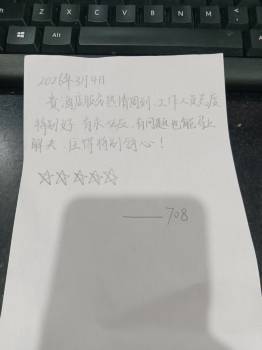 2026年3月4日
贵酒店服务热情周到,工作人员态度
特别好,有求必应,有问题也能马上
解决,住得特别舒心!
☆☆☆☆☆
——708
Alt
Alt